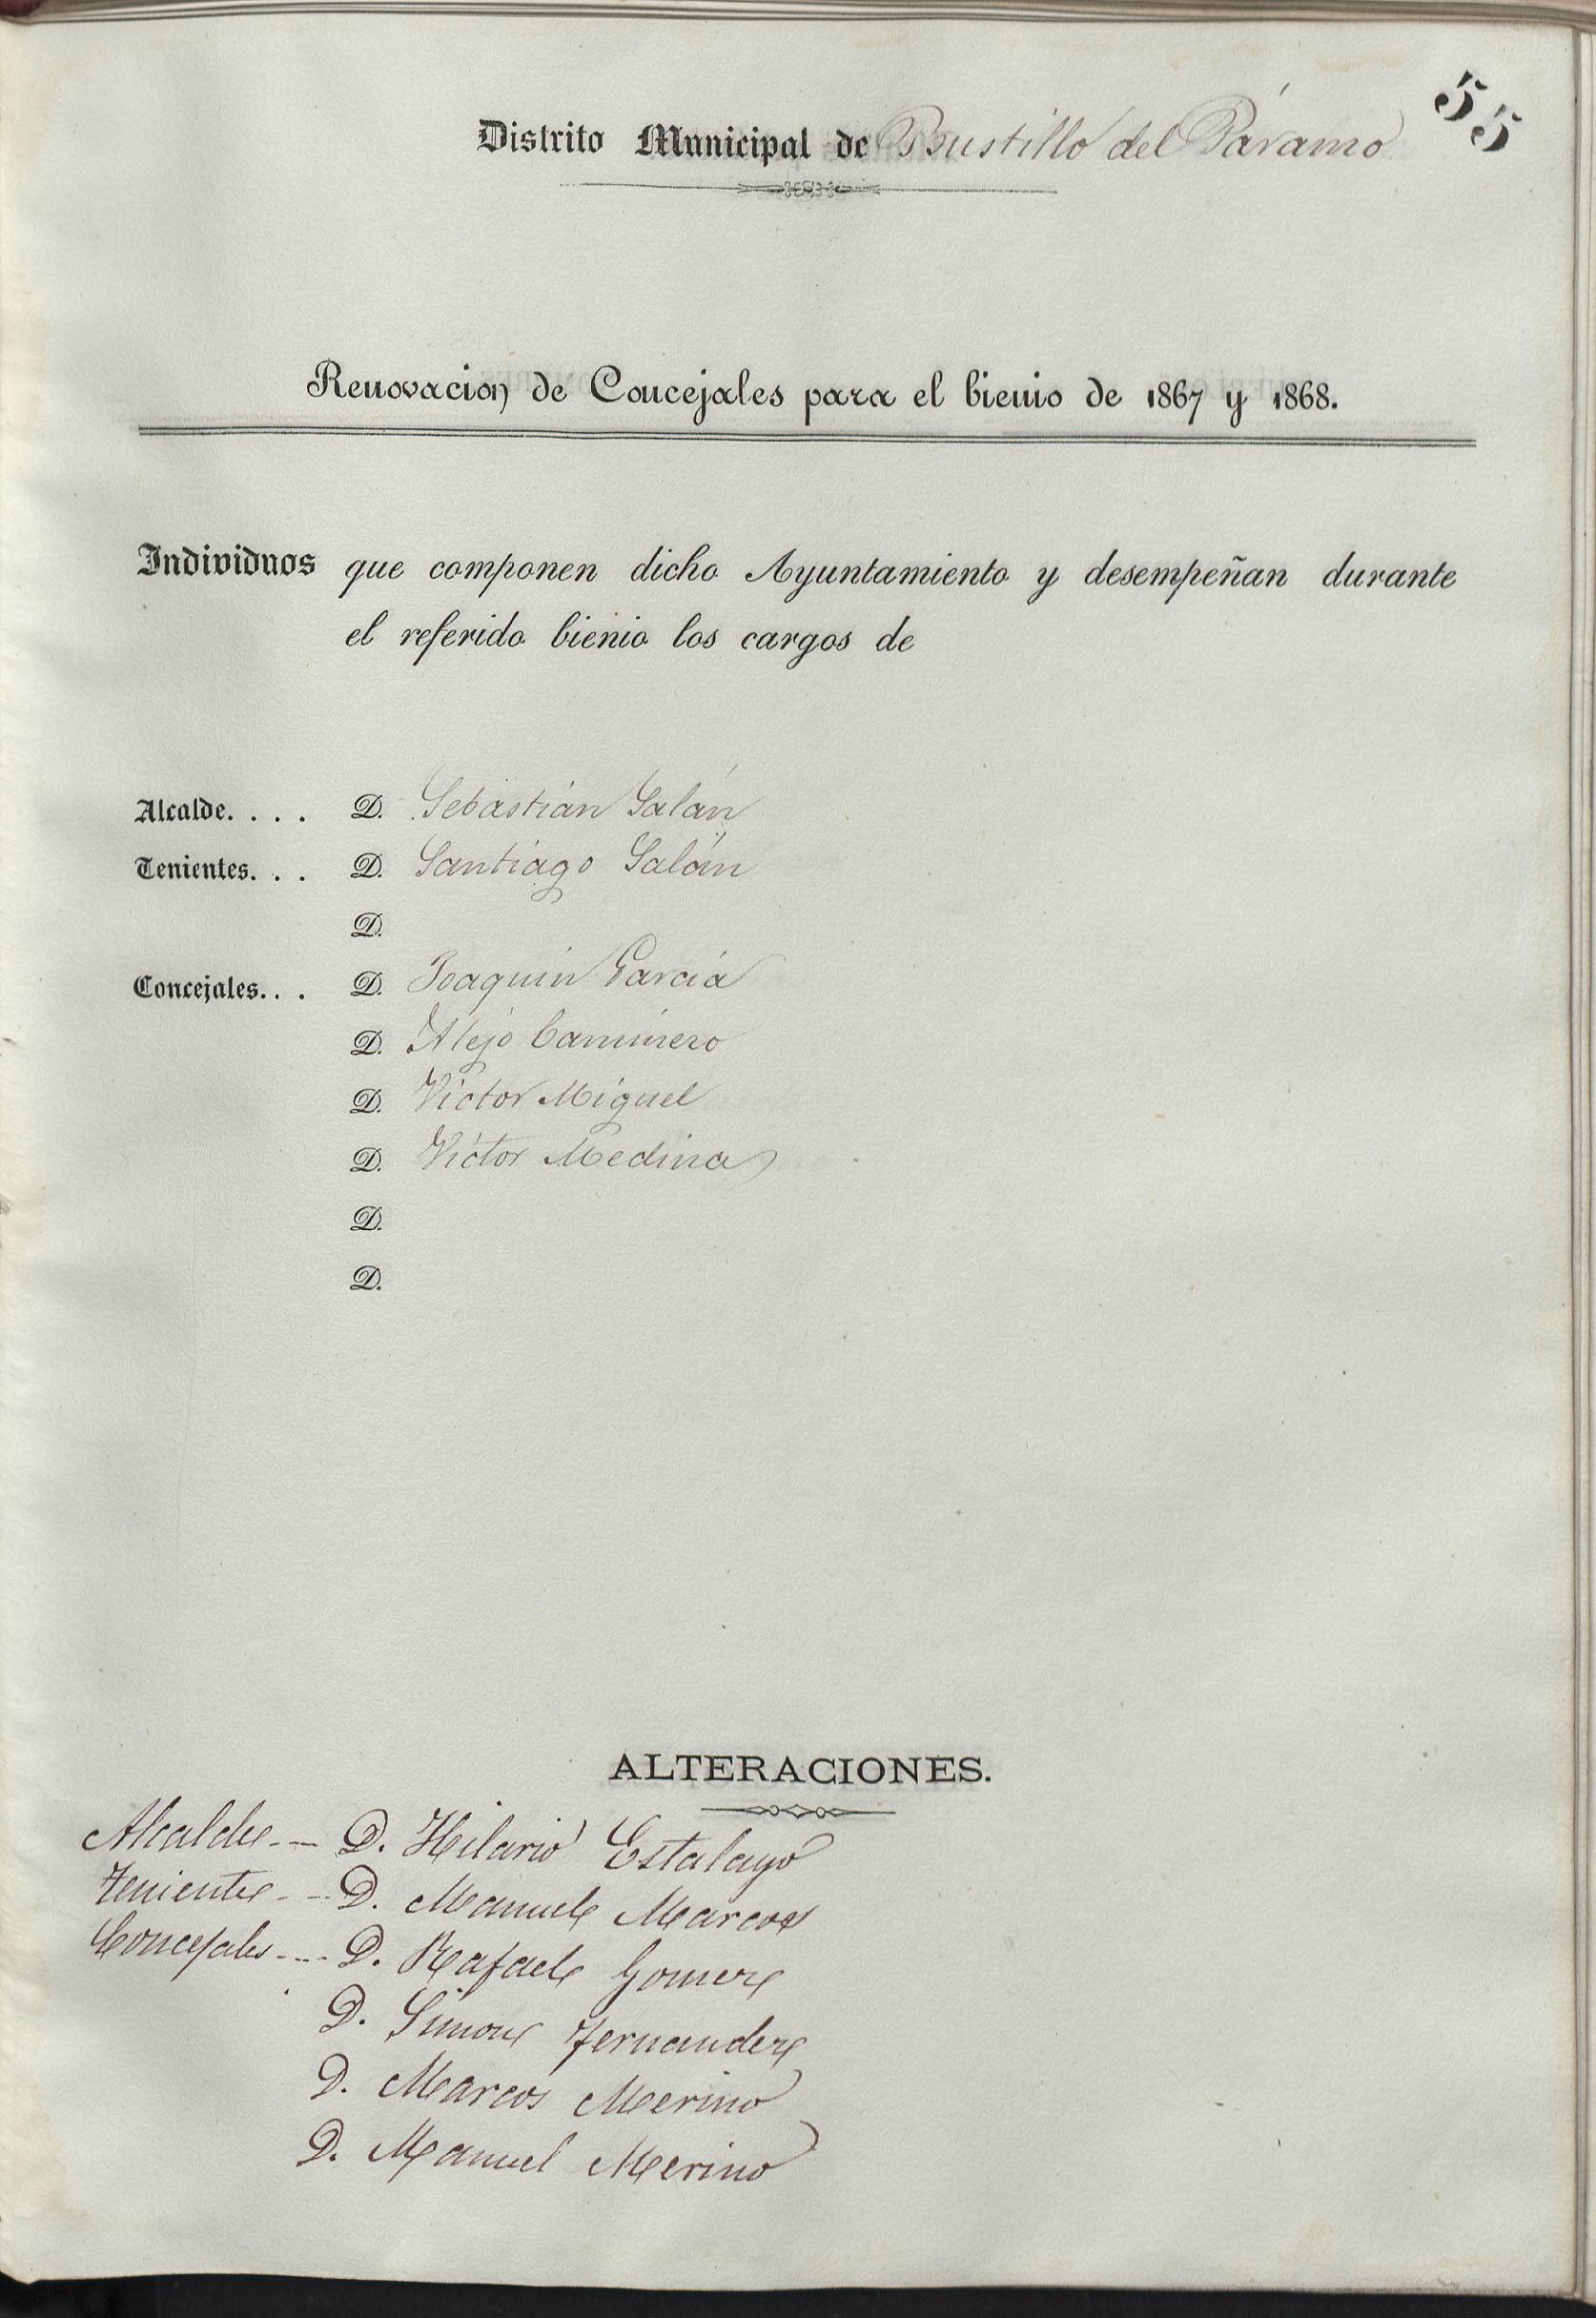 55
Distrito Municipal de Bustillo del Páramo
Renovacion de Concejales para el bienio de 1867 y 1868.
Individuos que componen dicho Ayuntamiento y desempeñan durante
el referido bienio los cargos de
Alcalde. . . . D. Sebastián Salán
Tenientes. . . D. Santiago Salán
D.
Concejales. . . D. Joaquin Garcia
D. Alejo Caminero
D. Victor Miguel
D. Victor Medina
D.
D.
ALTERACIONES.
Alcalde -- D. Hilario Estalayo
Teniente -- D. Manuel Marcos
Concejales --- D. Rafael Gomez
D. Simon Fernandez
D. Marcos Merino
D. Manuel Merino